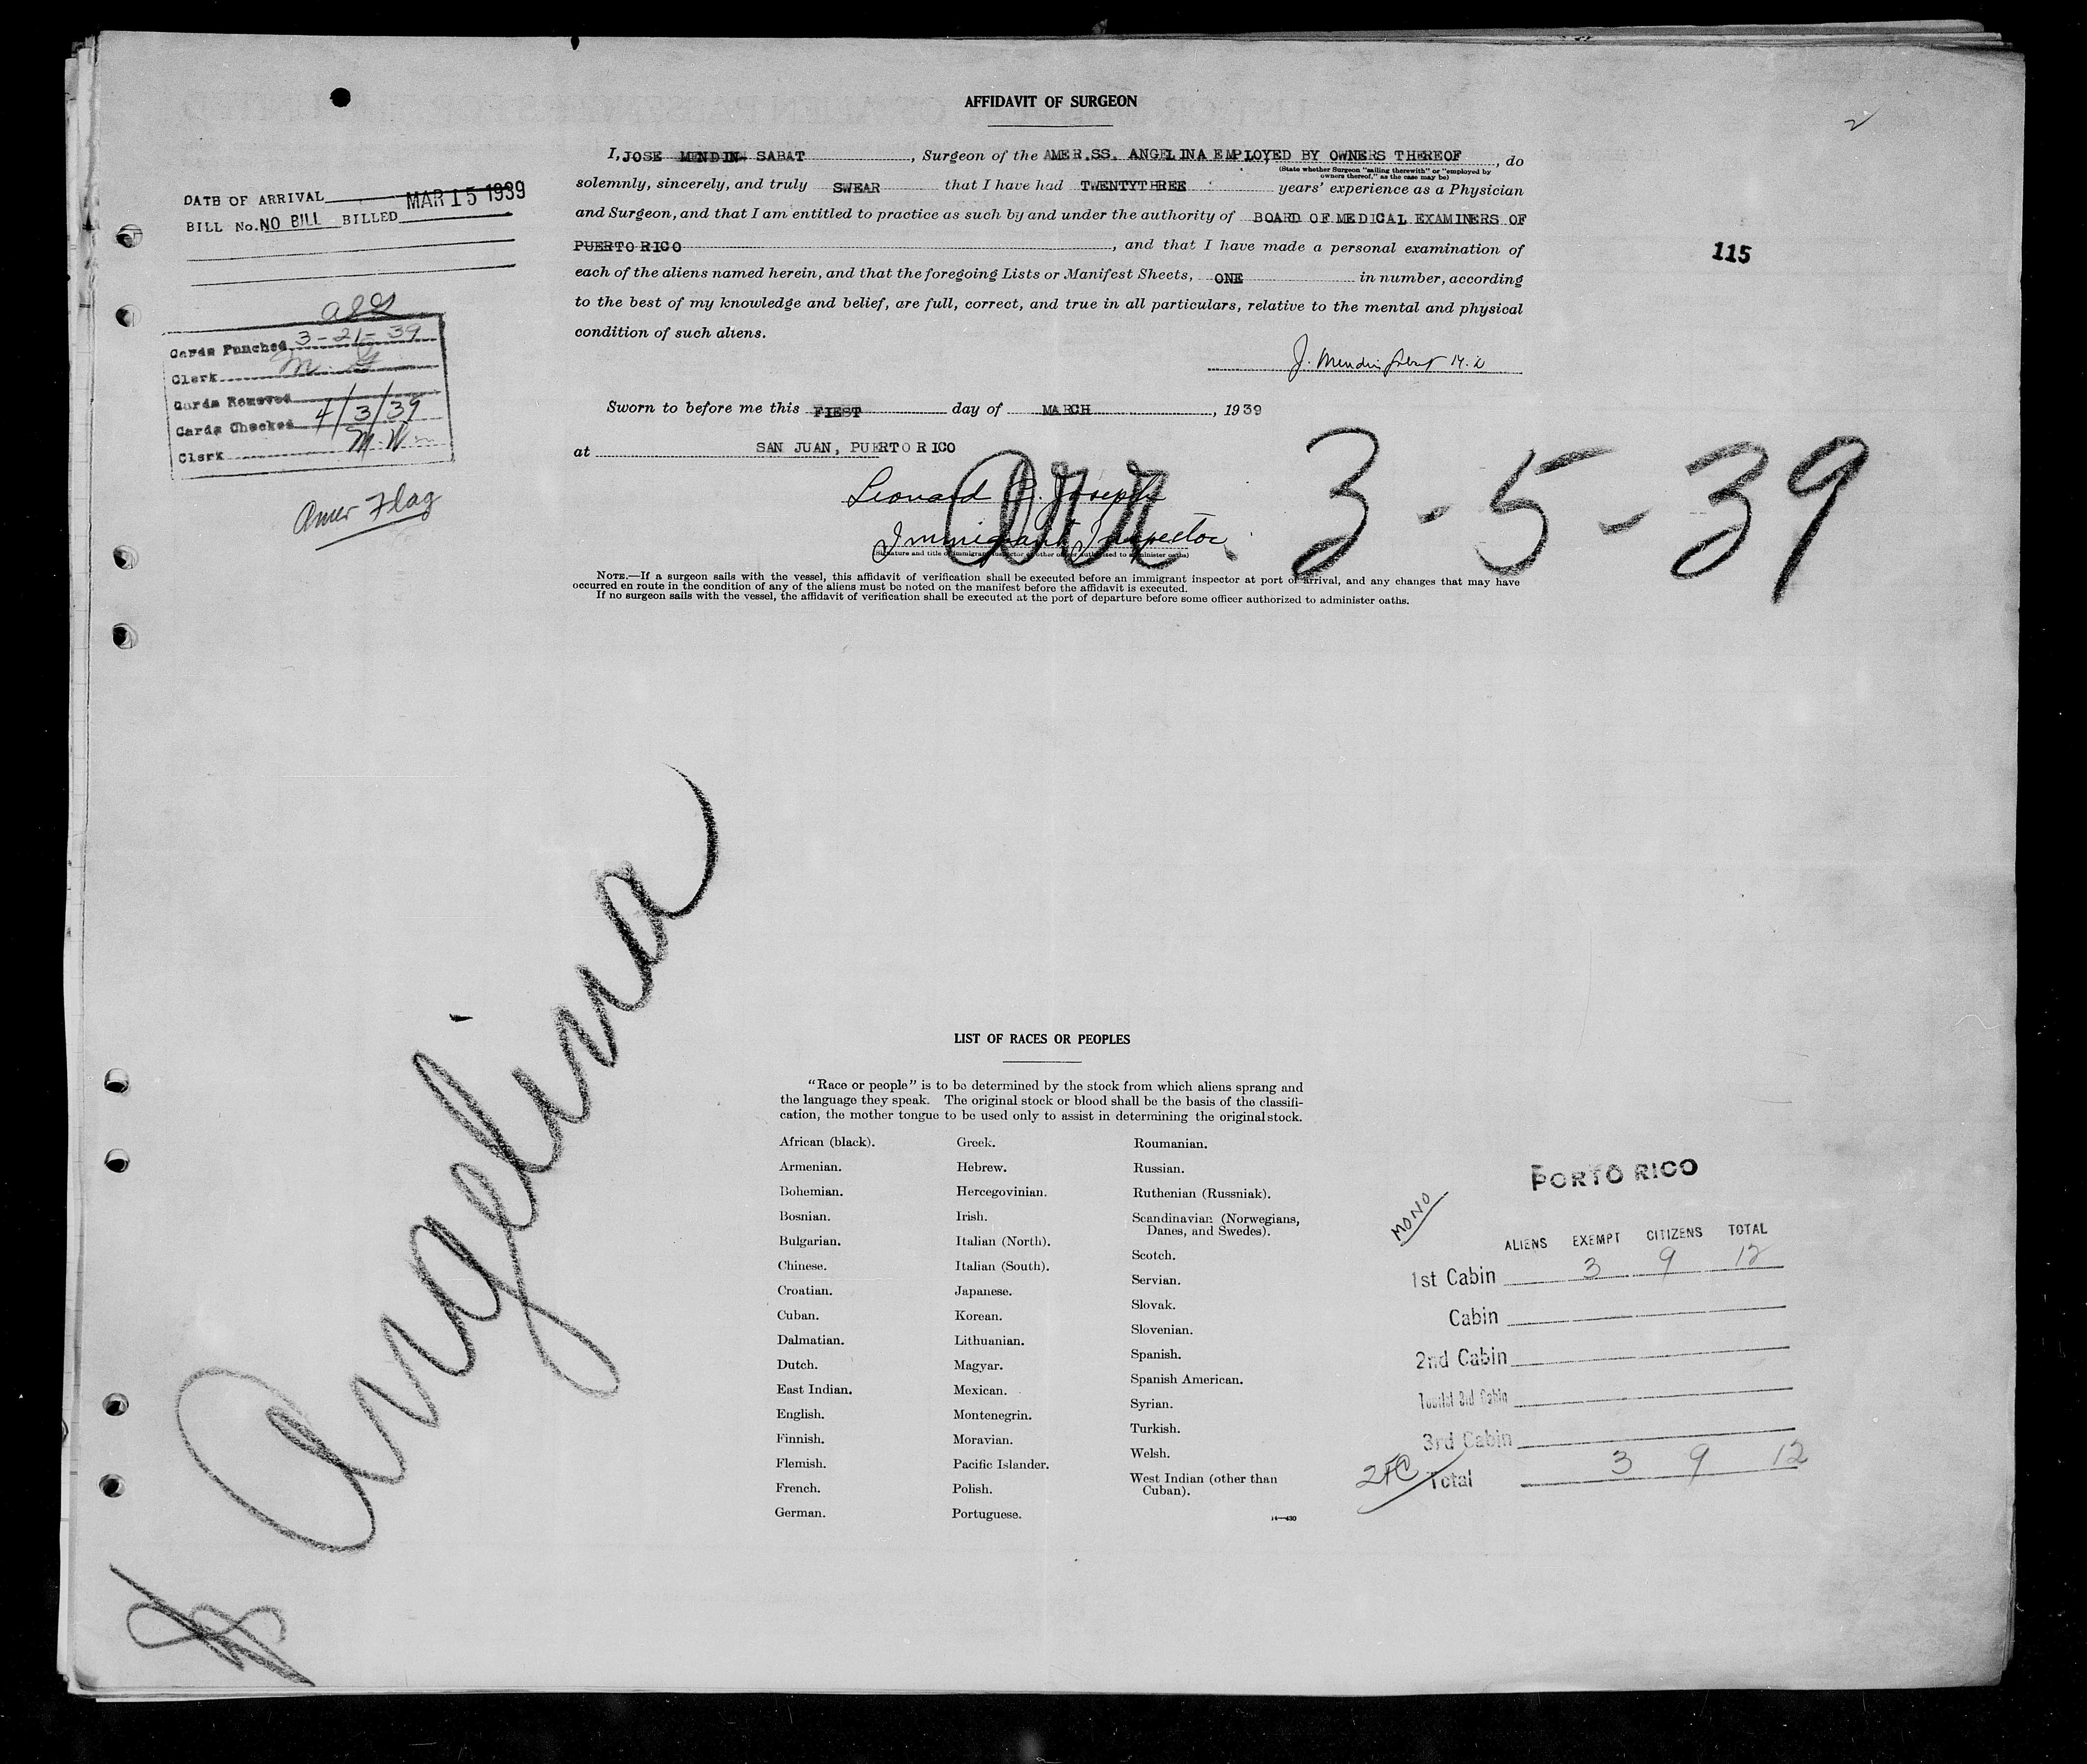 AFFIDAVIT OF SURGEON
2
I, JOSE MENDIN SABAT, Surgeon of the AMER.SS. ANGELINA EMPLOYED BY OWNERS THEREOF, do
(State whether Surgeon "sailing therewith" or "employed by
owners thereof," as the case may be)
solemnly, sincerely, and truly SWEAR that I have had TWENTYTHREE years' experience as a Physician
and Surgeon, and that I am entitled to practice as such by and under the authority of BOARD OF MEDICAL EXAMINERS OF
PUERTO RICO, and that I have made a personal examination of
each of the aliens named herein, and that the foregoing Lists or Manifest Sheets, ONE in number, according
to the best of my knowledge and belief, are full, correct, and true in all particulars, relative to the mental and physical
condition of such aliens.
J. Mendin Sabat M.D
Sworn to before me this FIEST day of MARCH, 1939
at SAN JUAN, PUERTO RICO
Leonard Joseph
Immigrant Inspector
(Signature and title of immigrant inspector or other officer authorized to administer oaths)
Arr. 3-5-39
NOTE.—If a surgeon sails with the vessel, this affidavit of verification shall be executed before an immigrant inspector at port of arrival, and any changes that may have
occurred en route in the condition of any of the aliens must be noted on the manifest before the affidavit is executed.
If no surgeon sails with the vessel, the affidavit of verification shall be executed at the port of departure before some officer authorized to administer oaths.
DATE OF ARRIVAL MAR 15 1939
BILL No. NO BILL BILLED
Cards Punched 3-21-39
Clerk M. G
Cards Removed
Cards Checked 4/3/39
Clerk M.W
Amer Flag
115
Angelina
LIST OF RACES OR PEOPLES
"Race or people" is to be determined by the stock from which aliens sprang and
the language they speak. The original stock or blood shall be the basis of the classifi-
cation, the mother tongue to be used only to assist in determining the original stock.
African (black).
Armenian.
Bohemian.
Bosnian.
Bulgarian.
Chinese.
Croatian.
Cuban.
Dalmatian.
Dutch.
East Indian.
English.
Finnish.
Flemish.
French.
German.
Greek.
Hebrew.
Hercegovinian.
Irish.
Italian (North).
Italian (South).
Japanese.
Korean.
Lithuanian.
Magyar.
Mexican.
Montenegrin.
Moravian.
Pacific Islander.
Polish.
Portuguese.
Roumanian.
Russian.
Ruthenian (Russniak).
Scandinavian (Norwegians,
Danes, and Swedes).
Scotch.
Servian.
Slovak.
Slovenian.
Spanish.
Spanish American.
Syrian.
Turkish.
Welsh.
West Indian (other than
Cuban).
14—430
PORTO RICO
MONO
ALIENS EXEMPT CITIZENS TOTAL
1st Cabin 3 9 12
Cabin
2nd Cabin
Tourist 3rd Cabin
3rd Cabin
Total 3 9 12